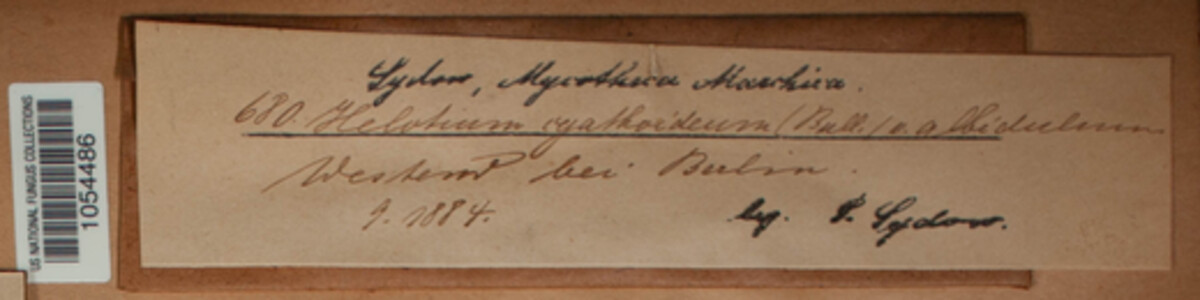 Sydow, Mycotheca Marchica.
680. Helotium cyathoideum (Bull.) v. albidulum
Westend bei Berlin.
9. 1884.
leg. P. Sydow.
US NATIONAL FUNGUS COLLECTIONS
1054486